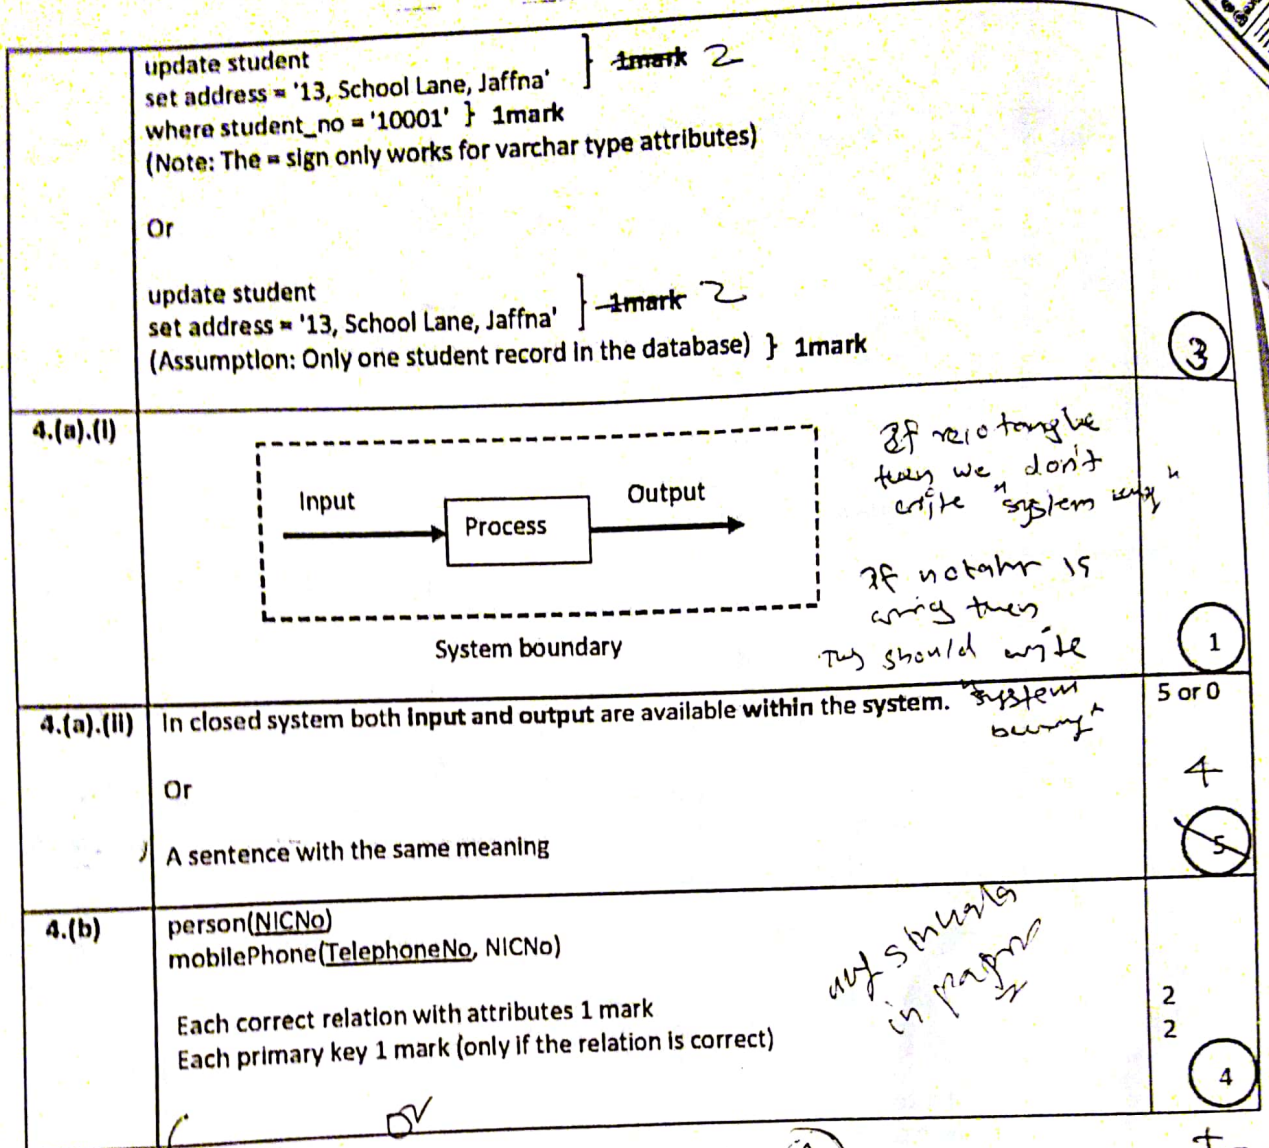 update student
set address = '13, School Lane, Jaffna' } 1mark 2
where student_no = '10001' } 1mark
(Note: The = sign only works for varchar type attributes)
Or
update student
set address = '13, School Lane, Jaffna' } 1mark 2
(Assumption: Only one student record in the database) } 1mark
3
4.(a).(i)
Input
Process
Output
System boundary
If
then we don't
write "system
If is
then
should write
"system
1
4.(a).(ii) In closed system both input and output are available within the system.
5 or 0
Or
4
A sentence with the same meaning
5
4.(b) person(NICNo)
mobilePhone(TelephoneNo, NICNo)
in
Each correct relation with attributes 1 mark 2
Each primary key 1 mark (only if the relation is correct) 2
4
or